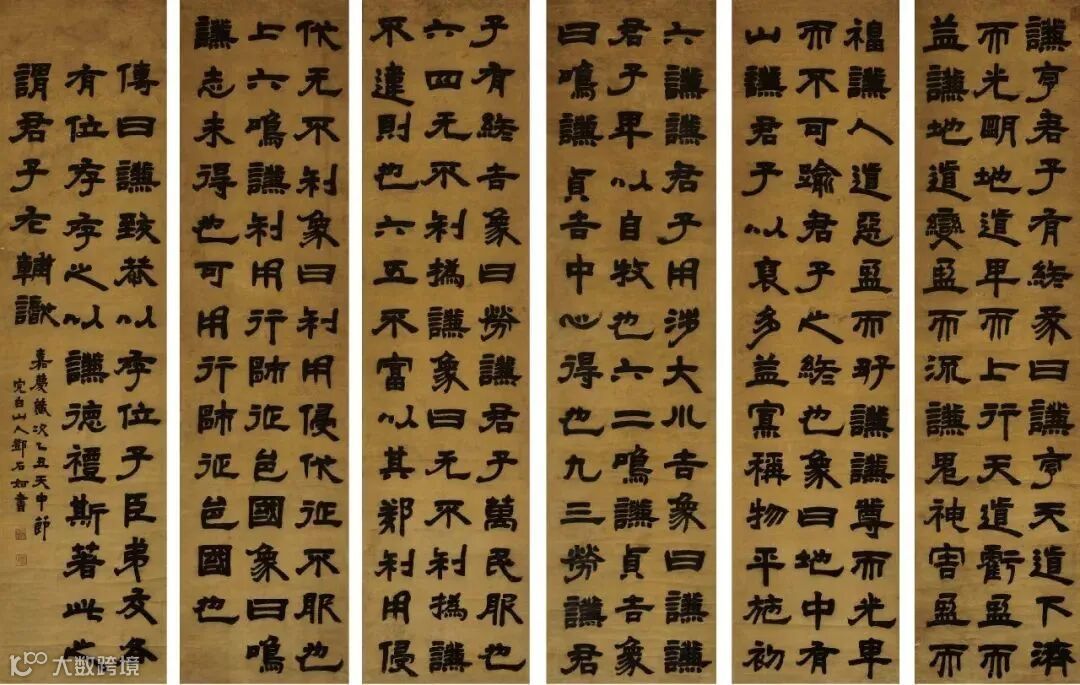 謙亨君子有終彖曰謙亨天道下濟
而光明地道卑而上行天道虧盈而
益謙地道變盈而流謙鬼神害盈而
福謙人道惡盈而好謙謙尊而光卑
而不可踰君子之終也象曰地中有
山謙君子以裒多益寡稱物平施初
六謙謙君子用涉大川吉象曰謙謙
君子卑以自牧也六二鳴謙貞吉象
曰鳴謙貞吉中心得也九三勞謙君
子有終吉象曰勞謙君子萬民服也
六四无不利撝謙象曰无不利撝謙
不違則也六五不富以其鄰利用侵
伐无不利象曰利用侵伐征不服也
上六鳴謙利用行師征邑國象曰鳴
謙志未得也可用行師征邑國也
傳曰謙致恭以存位子臣弟友各
有位存存之以謙德禮斯著此之
謂君子輔
嘉慶歲次乙丑天中節
完白山人鄧石如書
大数跨境